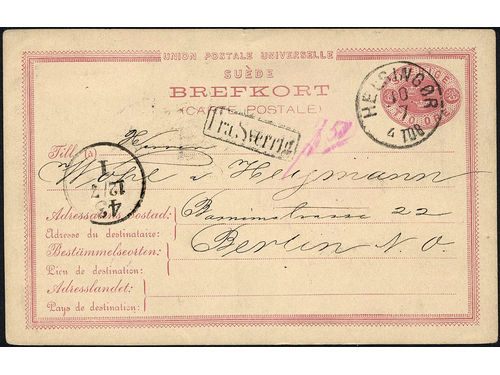 UNION POSTALE UNIVERSELLE
SUÈDE
BREFKORT
(CARTE POSTALE)
HELSINGØR
10 7
4 TOG
TIO ÖRE
Fra Sverrig
Till (à)
Herren
Wohl & Heymann
1
12/7
Adressatens bostad:
22
Adresse du destinataire:
Bestämmelseorten:
Berlin N. O.
Lieu de destination:
Adresslandet:
Pays de destination: